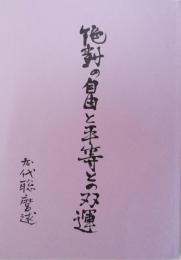 絶対の自由と平等との双運
太代聡麿述